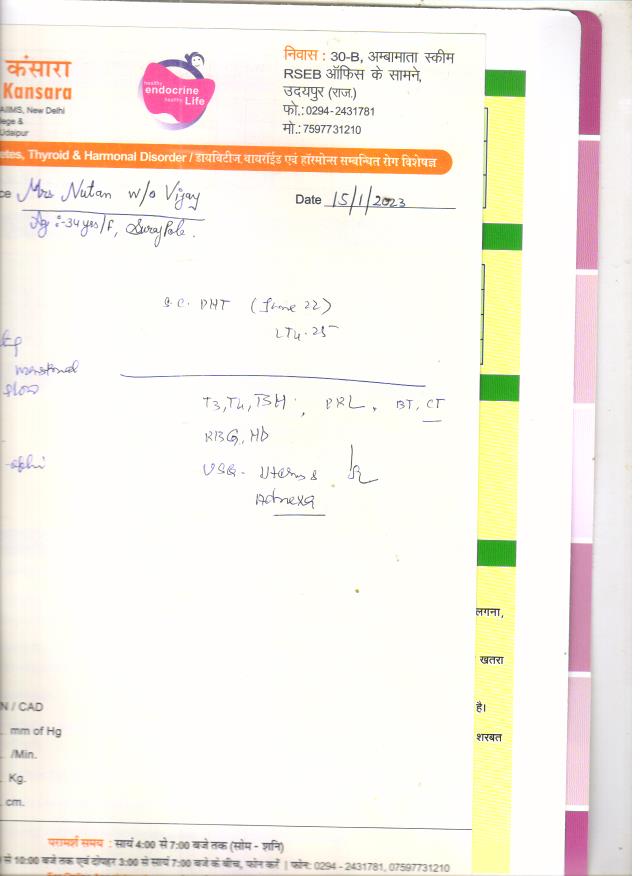 कंसारा
Kansara
AIIMS, New Delhi
lege &
Udaipur
healthy
endocrine
healthy Life
निवास : 30-B, अम्बामाता स्कीम
RSEB ऑफिस के सामने,
उदयपुर (राज.)
फो.: 0294-2431781
मो.: 7597731210
etes, Thyroid & Harmonal Disorder / डायबिटीज, थायरॉईड एवं हॉरमोन्स सम्बन्धित रोग विशेषज्ञ
ce Mrs Nutan w/o Vijay
Date 15/1/2023
Ag :-34 yrs/f, Suraj Pole.
(June 22)
menstrual
flow
T3, T4, TSH, PRL, BT, CT
RBG, HD
USG - Uterus &
Adnexa
लगना,
खतरा
है।
शरबत
N / CAD
mm of Hg
/Min.
Kg.
cm.
परामर्श समय : सायं 4:00 से 7:00 बजे तक (सोम - शनि)
से 10:00 बजे तक एवं दोपहर 3:00 से सायं 7:00 बजे के बीच, फोन करें | फोन: 0294 - 2431781, 07597731210